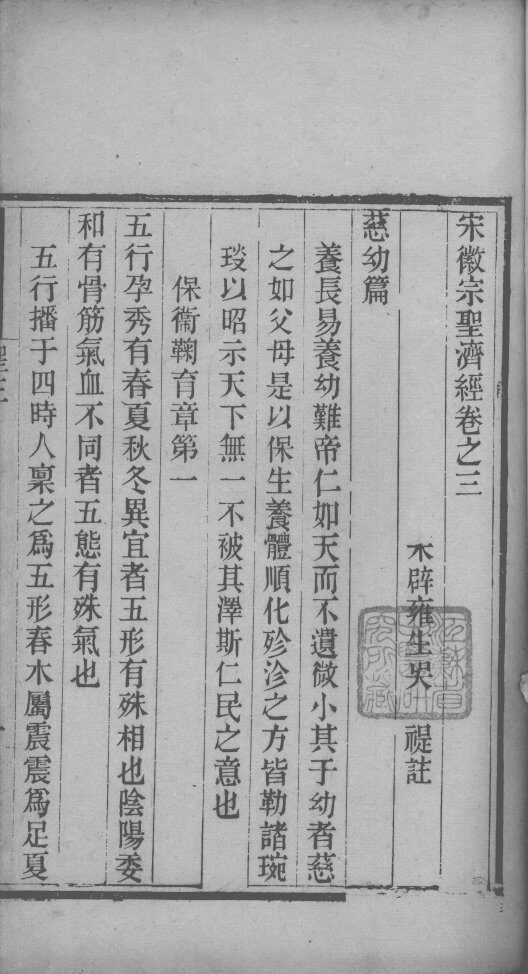 宋徽宗聖濟經卷之三
宋辟雍生吴　禔註
慈幼篇
養長易養幼難帝仁如天而不遺微小其于幼者慈
之如父母是以保生養體順化殄沴之方皆勒諸琬
琰以昭示天下無一不被其澤斯仁民之意也
保衞鞠育章第一
五行孕秀有春夏秋冬異宜者五形有殊相也陰陽委
和有骨筋氣血不同者五態有殊氣也
五行播于四時人稟之爲五形春木屬震震爲足夏